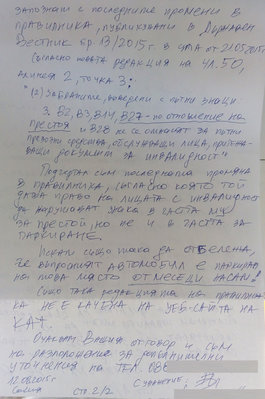 запознат с последните промени в
правилника, публикувани в Държавен
Вестник бр. 13/2015 г. в сила от 21.03.2015 г.
Съгласно новата редакция на чл. 50,
алинея 2, точка 3:
"(2) Забраните, въведени с пътни знаци
3. В2, В3, В14, В27 - по отношение на
престоя и В28 не се отнасят за пътни
превозни средства, обслужващи лица, притежа-
ващи документ за инвалидност"
съм последната промяна
в правилника, съгласно която той
дава право на лицата с инвалидност
да нарушават знака в частта му
за престой, но не и в частта за
паркиране.
Искам също така да отбележа,
че въпросният автомобил е паркирал
на това място от месеци насам!
Също така редакцията на правилни-
ка не е качена на уеб-сайта на
КАТ.
Очаквам Вашия отговор и съм
на разположение за допълнителни
уточнения на тел. 088
12.08.2015 г. С уважение,
София стр. 2/2